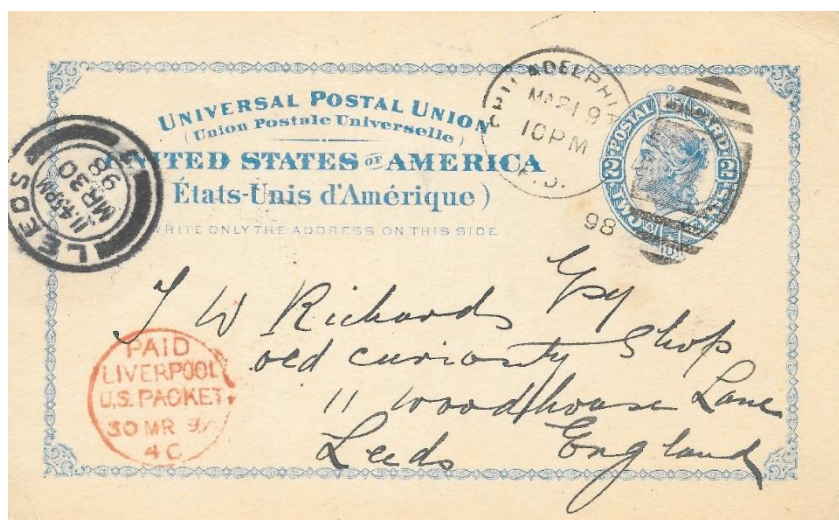 UNIVERSAL POSTAL UNION
(Union Postale Universelle)
UNITED STATES OF AMERICA
États-Unis d'Amérique)
WRITE ONLY THE ADDRESS ON THIS SIDE
PHILADELPHIA
MAR 19
10 PM
P.D.
98
POSTAL CARD
2 TWO CENTS 2
LEEDS
11.45 PM
MR 30
98
PAID
LIVERPOOL
U.S. PACKET
30 MR 98
4C
J W Richards Esq
old curiosity Shop
11 Woodhouse Lane
Leeds England